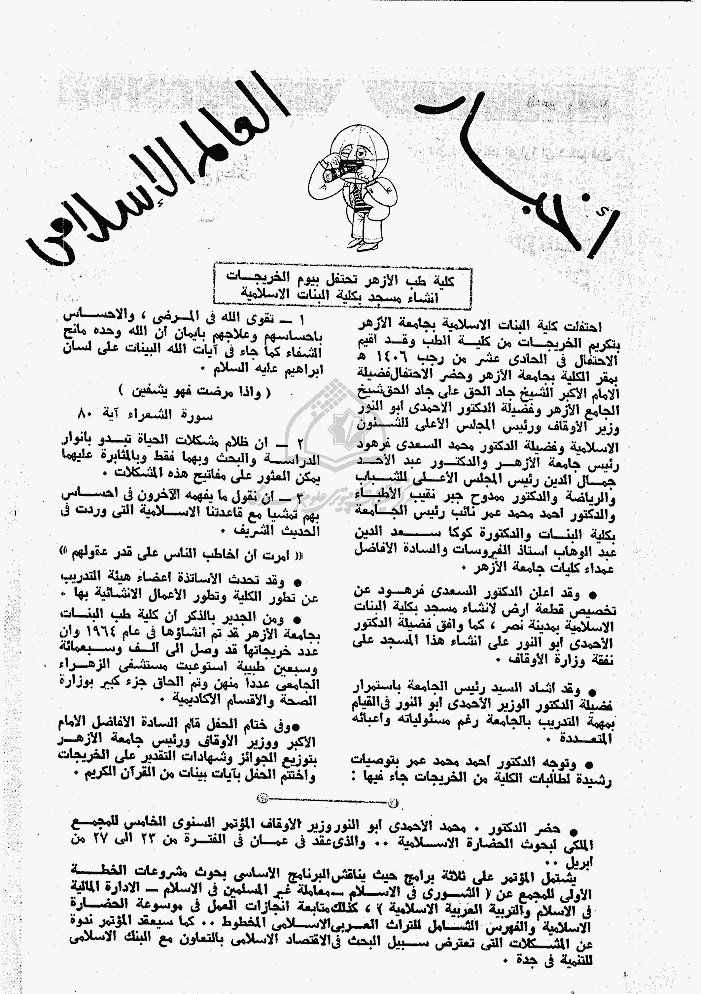 أخبار
العالم الإسلامي
كلية طب الأزهر تحتفل بيوم الخريجات
انشاء مسجد بكلية البنات الاسلامية
احتفلت كلية البنات الاسلامية بجامعة الأزهر
بتكريم الخريجات من كلية الطب وقد اقيم
الاحتفال في الحادى عشر من رجب ١٤٠٦ هـ
بمقر الكلية بجامعة الأزهر وحضر الاحتفال فضيلة
الامام الأكبر الشيخ جاد الحق على جاد الحق شيخ
الجامع الأزهر وفضيلة الدكتور الأحمدى أبو النور
وزير الأوقاف ورئيس المجلس الأعلى للشئون
الاسلامية وفضيلة الدكتور محمد السعدى فرهود
رئيس جامعة الأزهر والدكتور عبد الأحد
جمال الدين رئيس المجلس الأعلى للشباب
والرياضة والدكتور ممدوح جبر نقيب الأطباء
والدكتور احمد محمد عمر نائب رئيس الجامعة
بكلية البنات والدكتورة كوكا سعد الدين
عبد الوهاب استاذ الفيروسات والسادة الأفاضل
عمداء كليات جامعة الأزهر .
● وقد اعلن الدكتور السعدى فرهود عن
تخصيص قطعة ارض لانشاء مسجد بكلية البنات
الاسلامية بمدينة نصر ، كما وافق فضيلة الدكتور
الأحمدى أبو النور على انشاء هذا المسجد على
نفقة وزارة الأوقاف .
● وقد اشاد السيد رئيس الجامعة باستمرار
فضيلة الدكتور الوزير الأحمدى أبو النور فى القيام
بمهمة التدريب بالجامعة رغم مسئولياته واعبائه
المتعددة .
● وتوجه الدكتور احمد محمد عمر بتوصيات
رشيدة لطالبات الكلية من الخريجات جاء فيها :
١ — تقوى الله فى المرضى ، والاحساس
باحساسهم وعلاجهم بايمان أن الله وحده مانح
الشفاء كما جاء فى آيات الله البينات على لسان
ابراهيم عليه السلام .
( واذا مرضت فهو يشفين )
سورة الشعراء آية ٨٠
٢ — ان ظلام مشكلات الحياة تبدو بأنوار
الدراسة والبحث وبهما فقط وبالمثابرة عليهما
يمكن العثور على مفاتيح هذه المشكلات .
٣ — ان نقول ما يفهمه الآخرون فى احساس
بهم تمشيا مع قاعدتنا الاسلامية التى وردت فى
الحديث الشريف .
(( امرت ان اخاطب الناس على قدر عقولهم ))
● وقد تحدث الأساتذة أعضاء هيئة التدريب
عن تطور الكلية وتطور الأعمال الانشائية بها .
● ومن الجدير بالذكر أن كلية طب البنات
بجامعة الأزهر قد تم انشاؤها فى عام ١٩٦٤ وأن
عدد خريجاتها قد وصل الى ألف وسبعمائة
وسبعين طبيبة استوعبت مستشفى الزهراء
الجامعى عددا منهن وتم الحاق جزء كبير بوزارة
الصحة والأقسام الأكاديمية .
● وفى ختام الحفل قام السادة الأفاضل الامام
الاكبر ووزير الأوقاف ورئيس جامعة الأزهر
بتوزيع الجوائز وشهادات التقدير على الخريجات
واختتم الحفل بآيات بينات من القرآن الكريم .
● حضر الدكتور . محمد الأحمدى أبو النور وزير الأوقاف المؤتمر السنوى الخامس للمجمع
الملكى لبحوث الحضارة الاسلامية .. والذى عقد فى عمان فى الفترة من ٢٣ الى ٢٧ من
ابريل ..
يشتمل المؤتمر على ثلاثة برامج حيث يناقش البرنامج الأساسى بحوث مشروعات الخطة
الأولى للمجمع عن ( الشورى فى الاسلام — معاملة غير المسلمين فى الاسلام — الادارة المالية
فى الاسلام والتربية العربية الاسلامية ) ، كذلك متابعة انجازات العمل فى موسوعة الحضارة
الاسلامية والفهرس الشامل للتراث العربى الاسلامى المخطوط .. كما سيعقد المؤتمر ندوة
عن المشكلات التى تعترض سبيل البحث فى الاقتصاد الاسلامى بالتعاون مع البنك الاسلامى
للتنمية فى جدة .